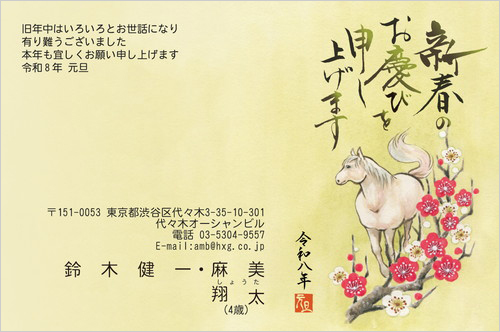 新春の
お慶びを
申し
上げます
令和八年
元旦
旧年中はいろいろとお世話になり
有り難うございました
本年も宜しくお願い申し上げます
令和8年 元旦
〒151-0053 東京都渋谷区代々木3-35-10-301
代々木オーシャンビル
電話 03-5304-9557
E-mail:amb@hxg.co.jp
鈴木健一・麻美
しょうた
翔太
(4歳)